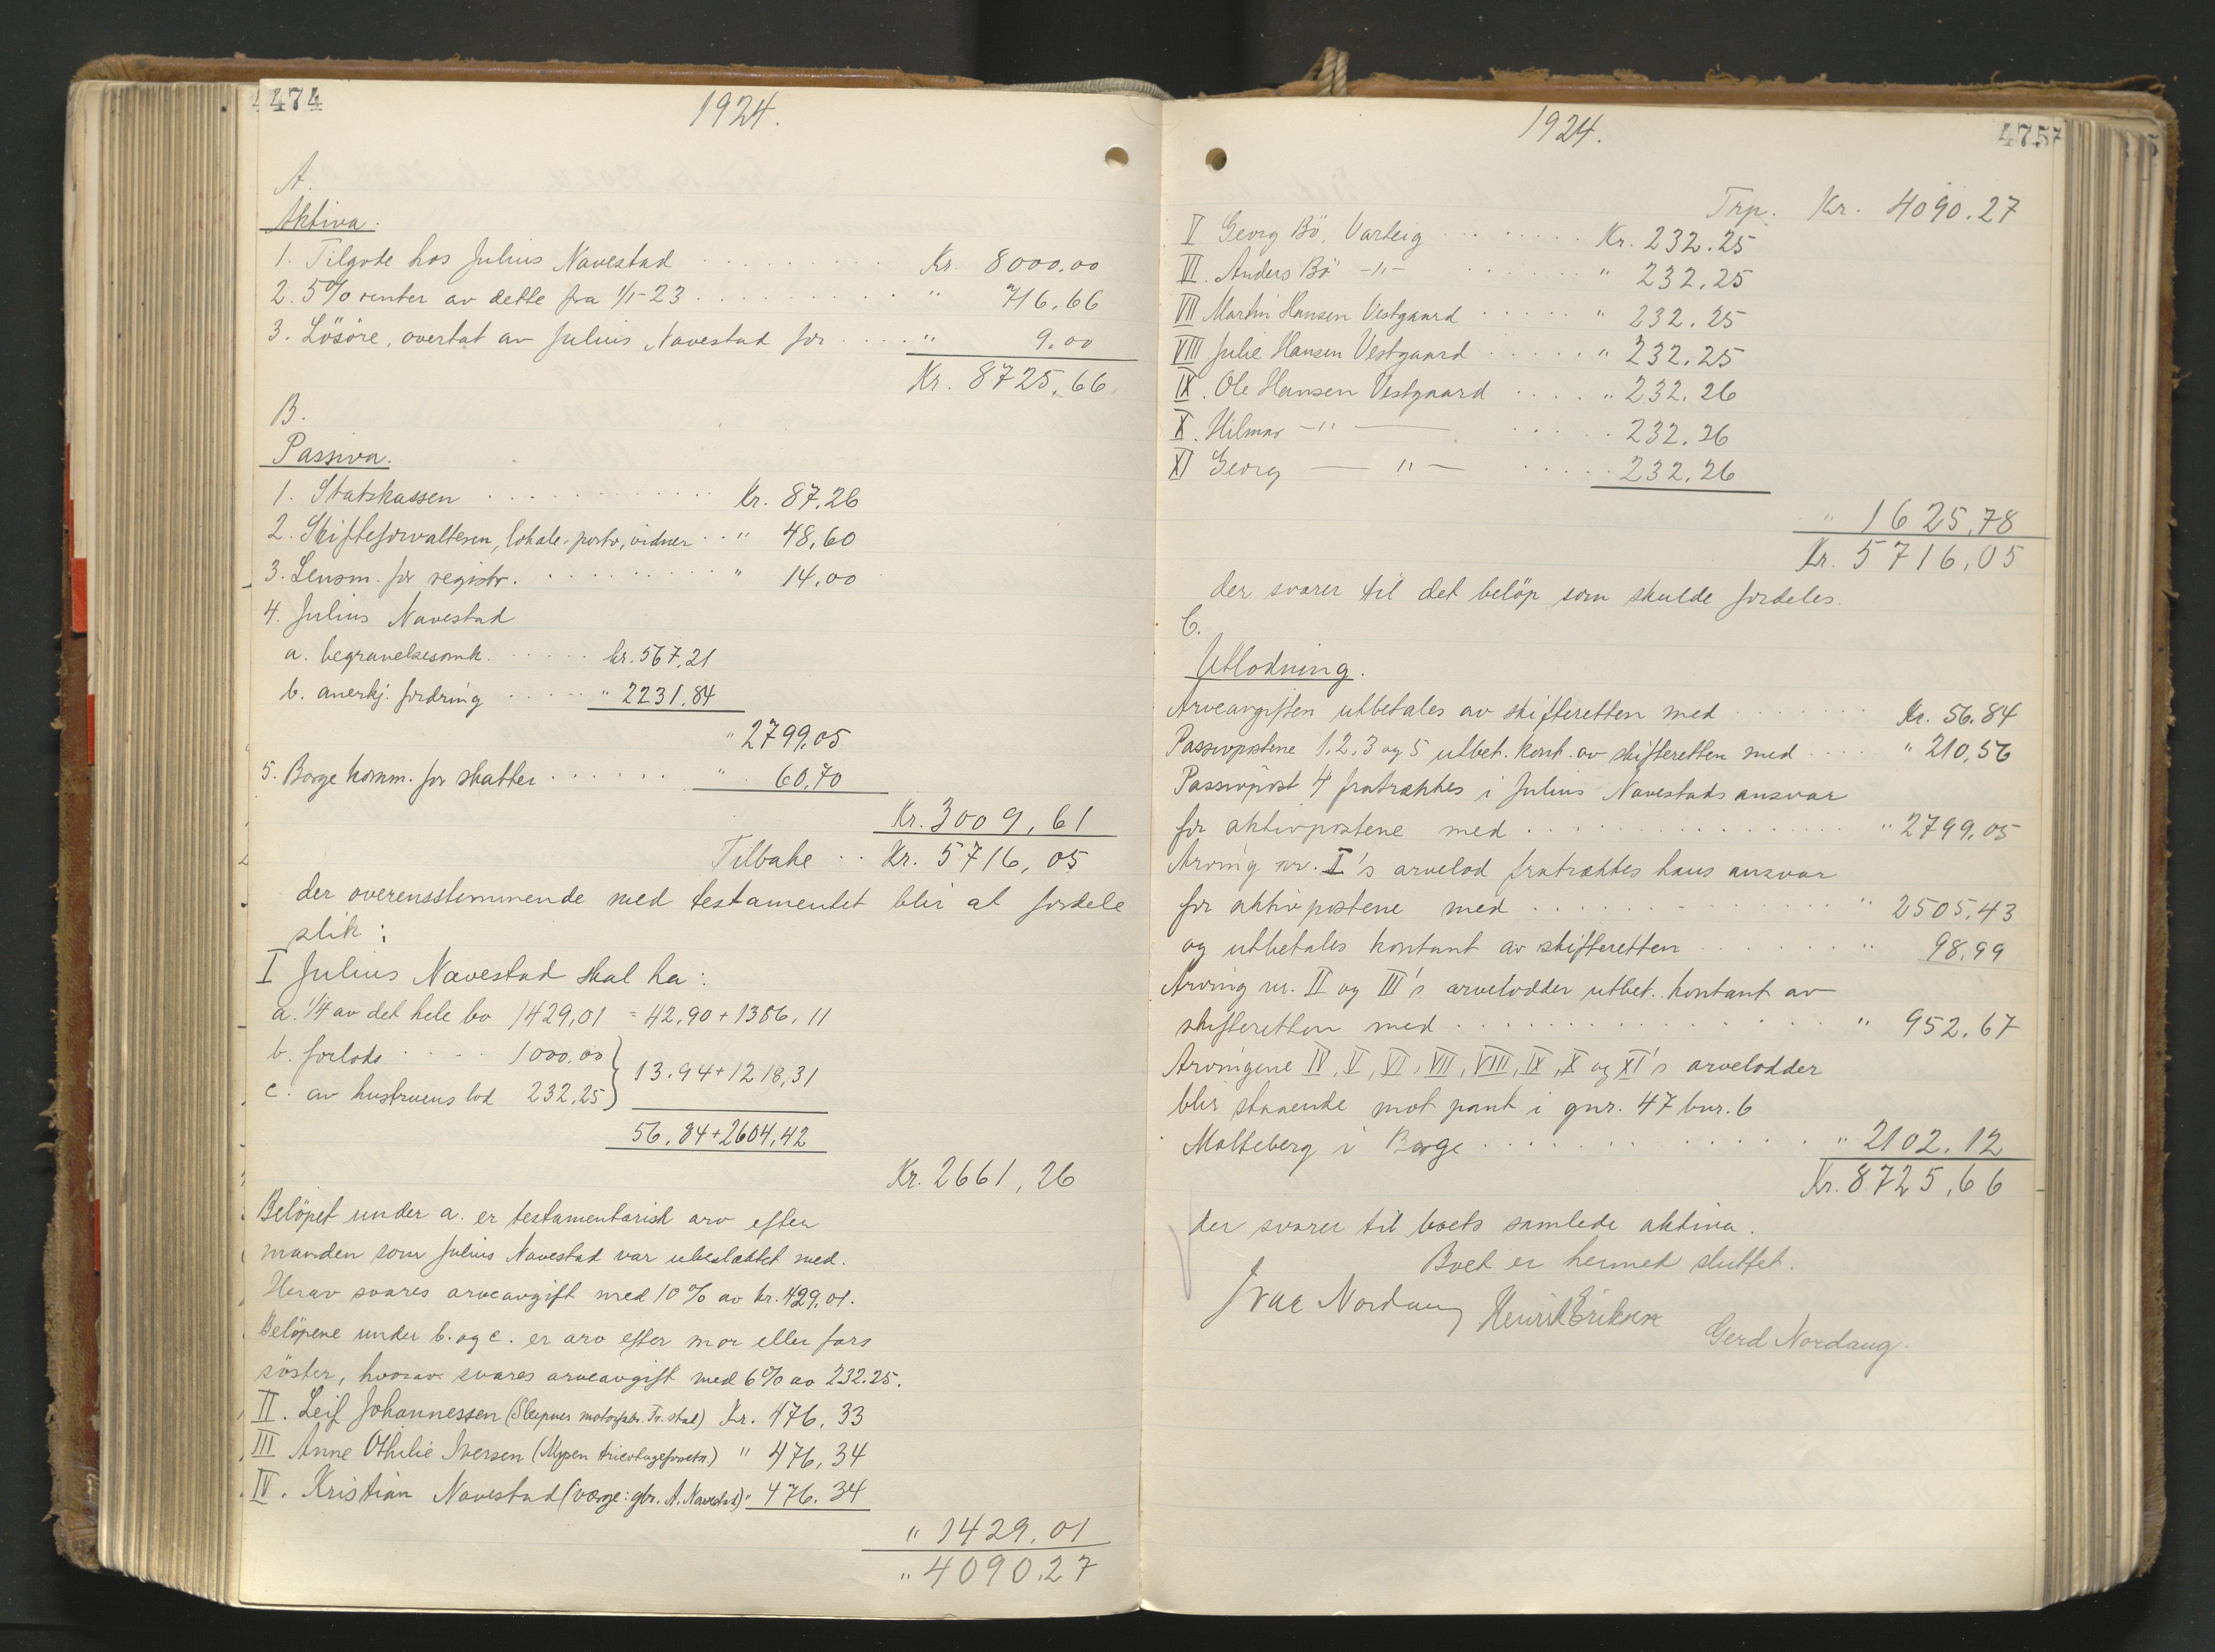 474
1924.
A.
Aktiva.
1. Tilgode hos Julius Navestad . . . . . . . . . Kr. 8000.00
2. 5% renter av dette fra 1/1-23 . . . . . . . . . " 716.66
3. Lösöre, overtat av Julius Navestad for . . . . " 9.00
Kr. 8725.66
B.
Passiva.
1. Statskassen . . . . . . . . . . . . Kr. 87.26
2. Skifteforvalteren, lokale, porto, vidner . . " 48,60
3. Lensm. for registr. . . . . . . . . . " 14,00
4. Julius Navestad
a. begravelsesomk. . . . . . kr. 567,21
b. anerkj. fordring . . . . . " 2231,84
" 2799,05
5. Borge komm. for skatter . . . . . . " 60,70
Kr. 3009,61
Tilbake . . Kr. 5716,05
der overensstemmende med testamentet blir at fordele
slik:
I Julius Navestad skal ha:
a. 1/4 av det hele bo 1429,01 = 42,90 + 1386,11
b. forlods . . . . 1000.00 } 13.94 + 1218,31
c. av hustruens lod 232,25
56,84 + 2604,42
Kr. 2661,26
Belöpet under a. er testamentarisk arv efter
manden som Julius Navestad var ubeslægtet med.
Herav svares arveavgift med 10% av kr. 429,01.
Belöpene under b. og c. er arv efter mor eller fars
söster, hvorav svares arveavgift med 6% av 232.25.
II. Leif Johannessen (Sleipner motorfabr. Fr. stad) Kr. 476,33
III Anne Othilie Iversen (Mysen tricotageforretn.) " 476,34
IV. Kristian Navestad (værge: gbr. A. Navestad) " 476.34
" 1429,01
" 4090.27
1924.
475
Trp. Kr. 4090.27
V Georg Bö, Varteig . . . . . . . . Kr. 232.25
VI. Anders Bö -"- . . . . . . " 232,25
VII Martin Hansen Vestgaard . . . . . " 232.25
VIII Julie Hansen Vestgaard . . . . . " 232,25
IX. Ole Hansen Vestgaard . . . . " 232,26
X. Hilmar -"- . . . . . 232,26
XI Georg -"- . . . . . 232,26
" 1625,78
Kr. 5716,05
der svarer til det belöp som skulde fordeles.
C.
Utlodning.
Arveavgiften utbetales av skifteretten med . . . . . . . Kr. 56.84
Passivpostene 1, 2, 3 og 5 utbet. kont. av skifteretten med . . . . " 210,56
Passivpost 4 fratrækkes i Julius Navestads ansvar
for aktivpostene med . . . . . . . . . . . . . . . . " 2799,05
Arving nr. I's arvelod fratrækkes hans ansvar
for aktivpostene med . . . . . . . . . . . . . . . " 2505,43
og utbetales kontant av skifteretten . . . . . . . . " 98,99
Arving nr. II og III's arvelodder utbet. kontant av
skifteretten med . . . . . . . . . . . . . . . . . " 952.67
Arvingene IV, V, VI, VII, VIII, IX, X og XI's arvelodder
blir staaende mot pant i gnr. 47 bnr. 6
Molteberg i Borge . . . . . . . . . . . . . . " 2102.12
Kr. 8725,66
der svarer til boets samlede aktiva.
Boet er hermed sluttet.
Ivar Nordaug Henrik Eriksen Gerd Nordaug.